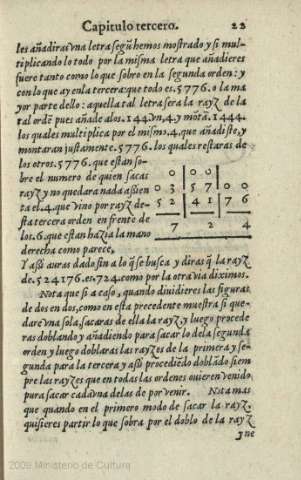 Capitulo tercero. 22
les añadiras vna letra segũ hemos mostrado y si mul-
tiplicando lo todo por la misma letra que añadieres
fuere tanto como lo que sobro en la segunda orden: y
con lo que ay en la tercera: que todo es. 5776. o la ma
yor parte dello: aquella tal letra sera la rayz de la
tal ordẽ pues añade a los. 144. vn. 4. y mõta. 1444.
los quales multiplica por el mismo. 4. que añadiste, y
montaran justamente. 5776. los quales restaras de
los otros. 5776. que estan so-
bre el numero de quien sacas
rayz y no quedara nada assien
ta el. 4. que vino por rayz de-
sta tercera orden en frente de
los. 6. que estan hazia la mano
derecha como parece.
0 0 0
0 3 5 7 0 0
5 2 4 1 7 6
7 2 4
Y assi auras dado fin a lo q̃ se busca y diras q̃ la rayz
de. 524176. es. 724. como por la otra via diximos.
Nota que si a caso, quando diuidieres las figuras
de dos en dos, como en esta precedente muestra si que-
dare vna sola, sacaras de ella la rayz, y luego procede
ras doblando y añadiendo para sacar lo de la segunda
orden y luego doblaras las rayzes de la primera y se-
gunda para la tercera y assi procediẽdo doblãdo siem
pre las rayzes que en todas las ordenes ouieren venido
para sacar cada vna de las de por venir. Nota mas
que quando en el primero modo de sacar la rayz,
quisieres partir lo que sobra por el doblo de la rayz
que
2009 Ministerio de Cultura